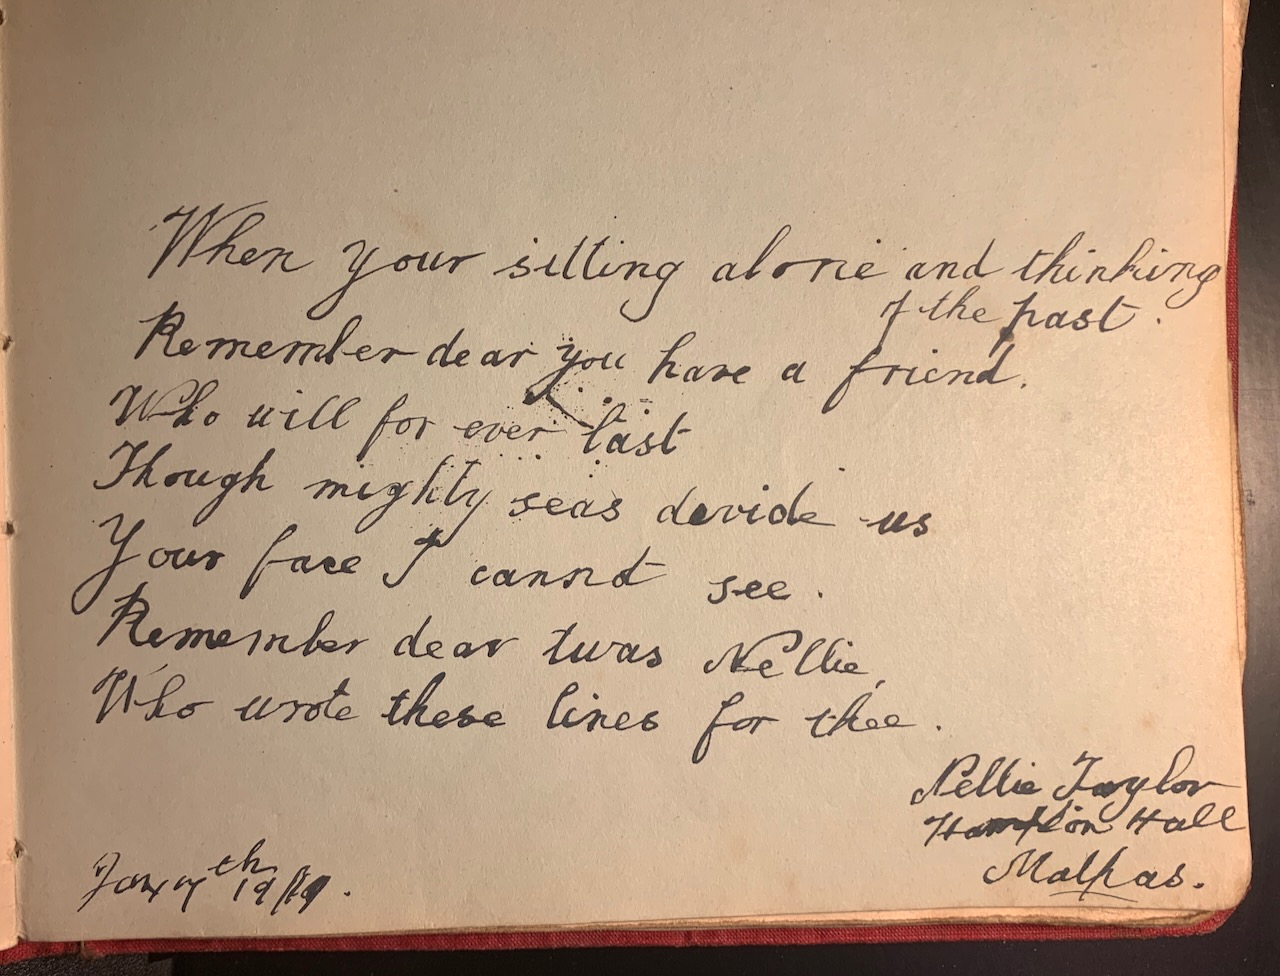 When your sitting alone and thinking
of the past.
Remember dear you have a friend.
Who will for ever last
Though mighty seas devide us
Your face I cannot see.
Remember dear twas Nellie,
Who wrote these lines for thee.
Nellie Taylor
Hampton Hall
Malpas.
7th 19